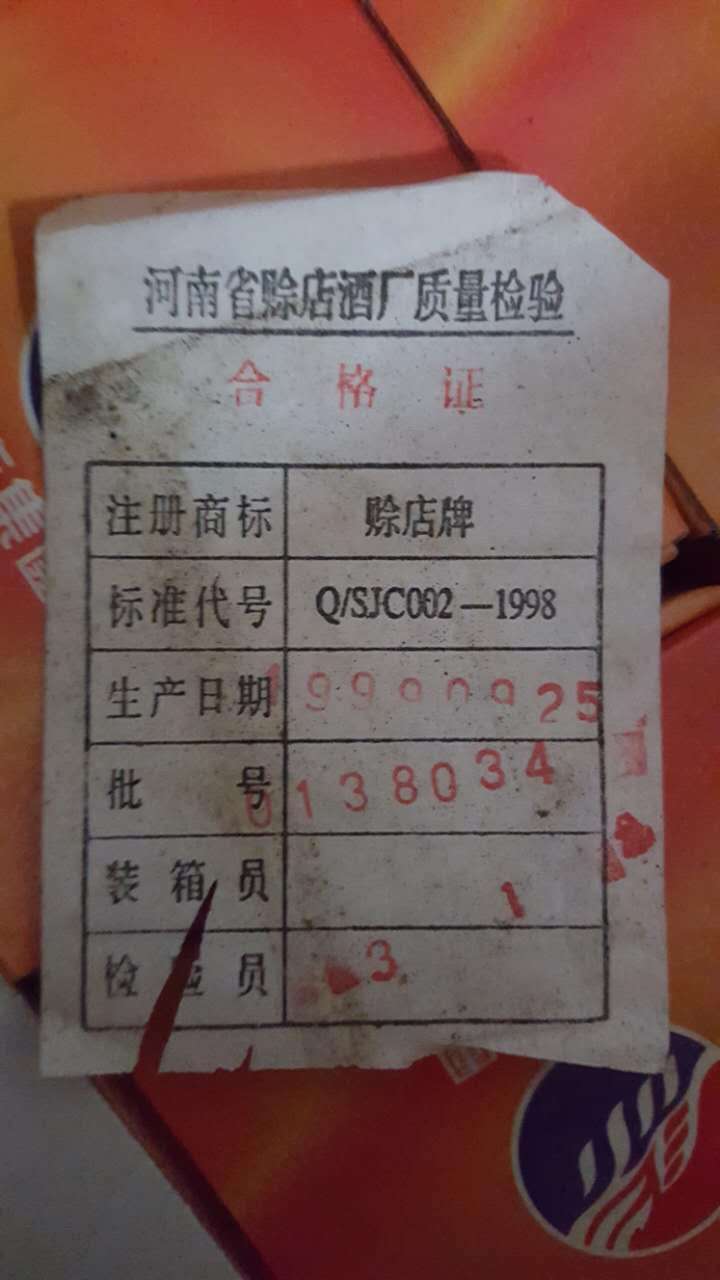 河南省赊店酒厂质量检验
合格证
注册商标 赊店牌
标准代号 Q/SJC002—1998
生产日期 19990925
批号 0138034
装箱员 1
检验员 3
集